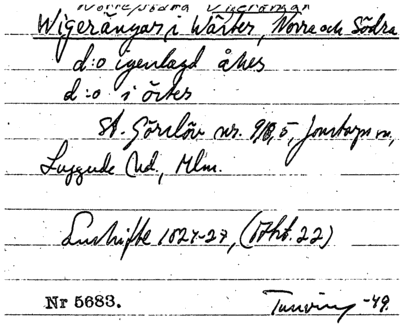 Norra, Södra Vigerängar
Wigerängar, i Wärter, Norra och Södra
d:o igenlagd åkes
d:o i örter
St. Görslöv nr. 9/8, 5, Jonstorps sn,
Luggude hd, Mlm.
Enskifte 1824-27, (Akt. 22)
Nr 5683.
-49.